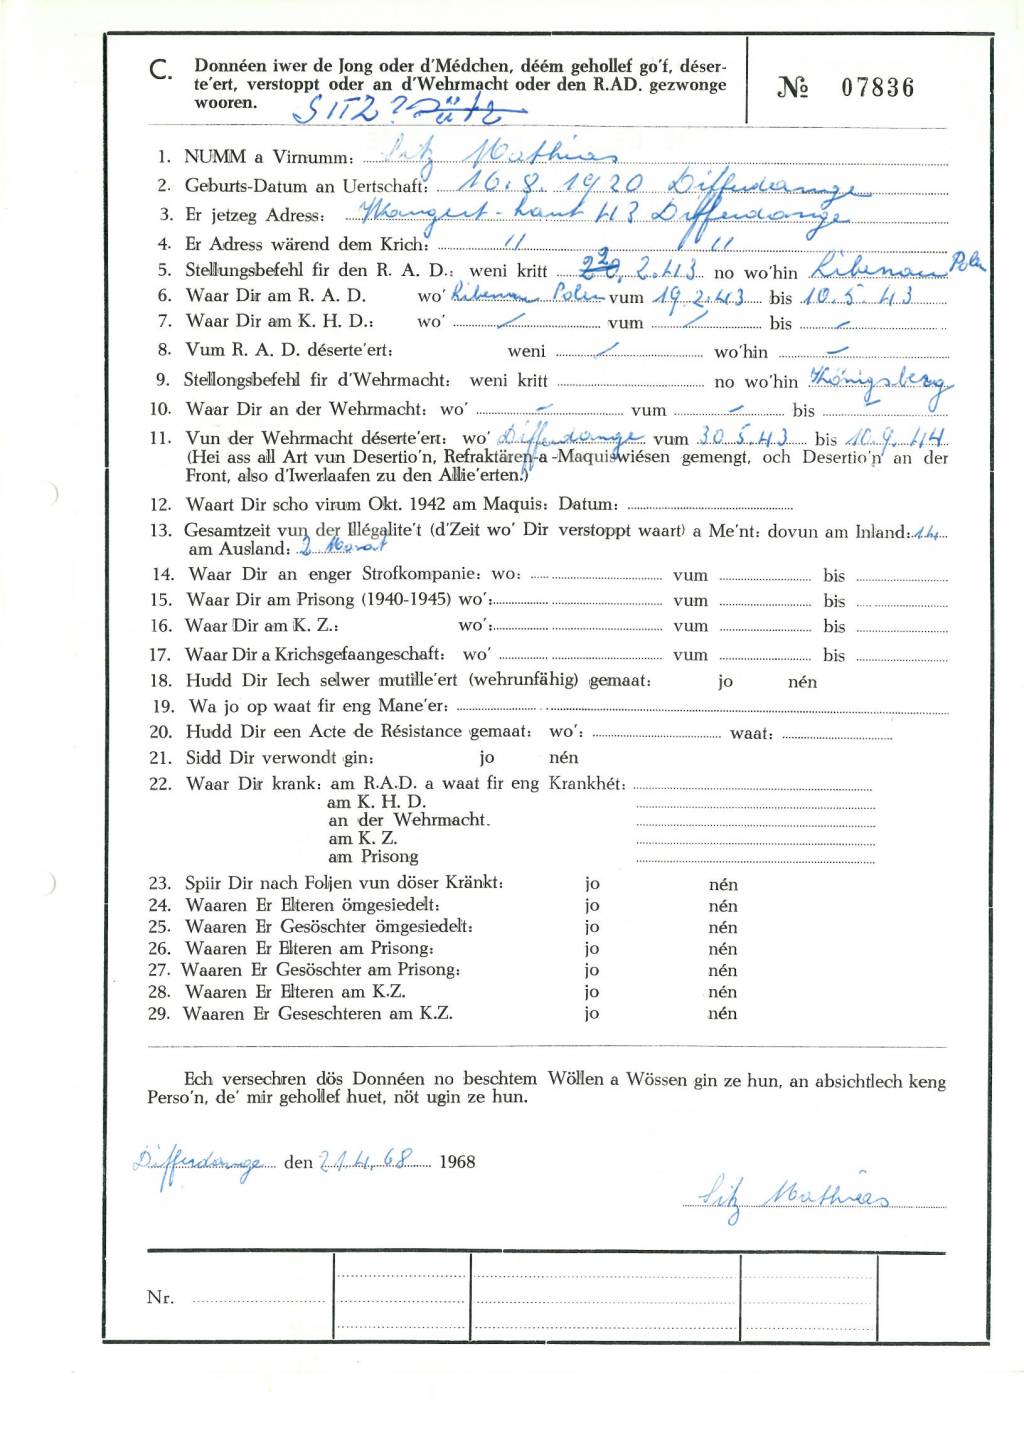 C. Donnéen iwer de Jong oder d'Médchen, déém gehollef go'f, déser-
te'ert, verstoppt oder an d'Wehrmacht oder den R.AD. gezwonge
wooren.
№ 07836
SITZ ?
1. NUMM a Virnumm: Sitz Mathias
2. Geburts-Datum an Uertschaft: 16.8.1920 Differdange
3. Er jetzeg Adress: 43 Differdange
4. Er Adress wärend dem Krich: " "
5. Stellungsbefehl fir den R. A. D.: weni kritt 2.43 no wo'hin Libenau Polen
6. Waar Dir am R. A. D. wo' Libenau Polen vum 19.2.43 bis 10.5.43
7. Waar Dir am K. H. D.: wo' / vum / bis /
8. Vum R. A. D. déserte'ert: weni / wo'hin /
9. Stellongsbefehl fir d'Wehrmacht: weni kritt no wo'hin Königsberg
10. Waar Dir an der Wehrmacht: wo' - vum - bis -
11. Vun der Wehrmacht déserte'ert: wo' Differdange vum 30.5.43 bis 10.9.44
(Hei ass all Art vun Desertio'n, Refraktären-a-Maquiswiésen gemengt, och Desertio'n an der
Front, also d'Iwerlaafen zu den Allie'erten.)
12. Waart Dir scho virum Okt. 1942 am Maquis: Datum:
13. Gesamtzeit vun der Illégalite't (d'Zeit wo' Dir verstoppt waart) a Me'nt: dovun am Inland: 14
am Ausland: 2 Monat
14. Waar Dir an enger Strofkompanie: wo: vum bis
15. Waar Dir am Prisong (1940-1945) wo': vum bis
16. Waar Dir am K. Z.: wo': vum bis
17. Waar Dir a Krichsgefaangeschaft: wo' vum bis
18. Hudd Dir Iech selwer mutille'ert (wehrunfähig) gemaat: jo nén
19. Wa jo op waat fir eng Mane'er:
20. Hudd Dir een Acte de Résistance gemaat: wo': waat:
21. Sidd Dir verwondt gin: jo nén
22. Waar Dir krank: am R.A.D. a waat fir eng Krankhét:
am K. H. D.
an der Wehrmacht.
am K. Z.
am Prisong
23. Spiir Dir nach Foljen vun döser Kränkt: jo nén
24. Waaren Er Elteren ömgesiedelt: jo nén
25. Waaren Er Gesöschter ömgesiedelt: jo nén
26. Waaren Er Elteren am Prisong: jo nén
27. Waaren Er Gesöschter am Prisong: jo nén
28. Waaren Er Elteren am K.Z. jo nén
29. Waaren Er Geseschteren am K.Z. jo nén
Ech versechren dös Donnéen no beschtem Wöllen a Wössen gin ze hun, an absichtlech keng
Perso'n, de' mir gehollef huet, nöt ugin ze hun.
Differdange den 21.4.68 1968
Sitz Mathias
Nr.